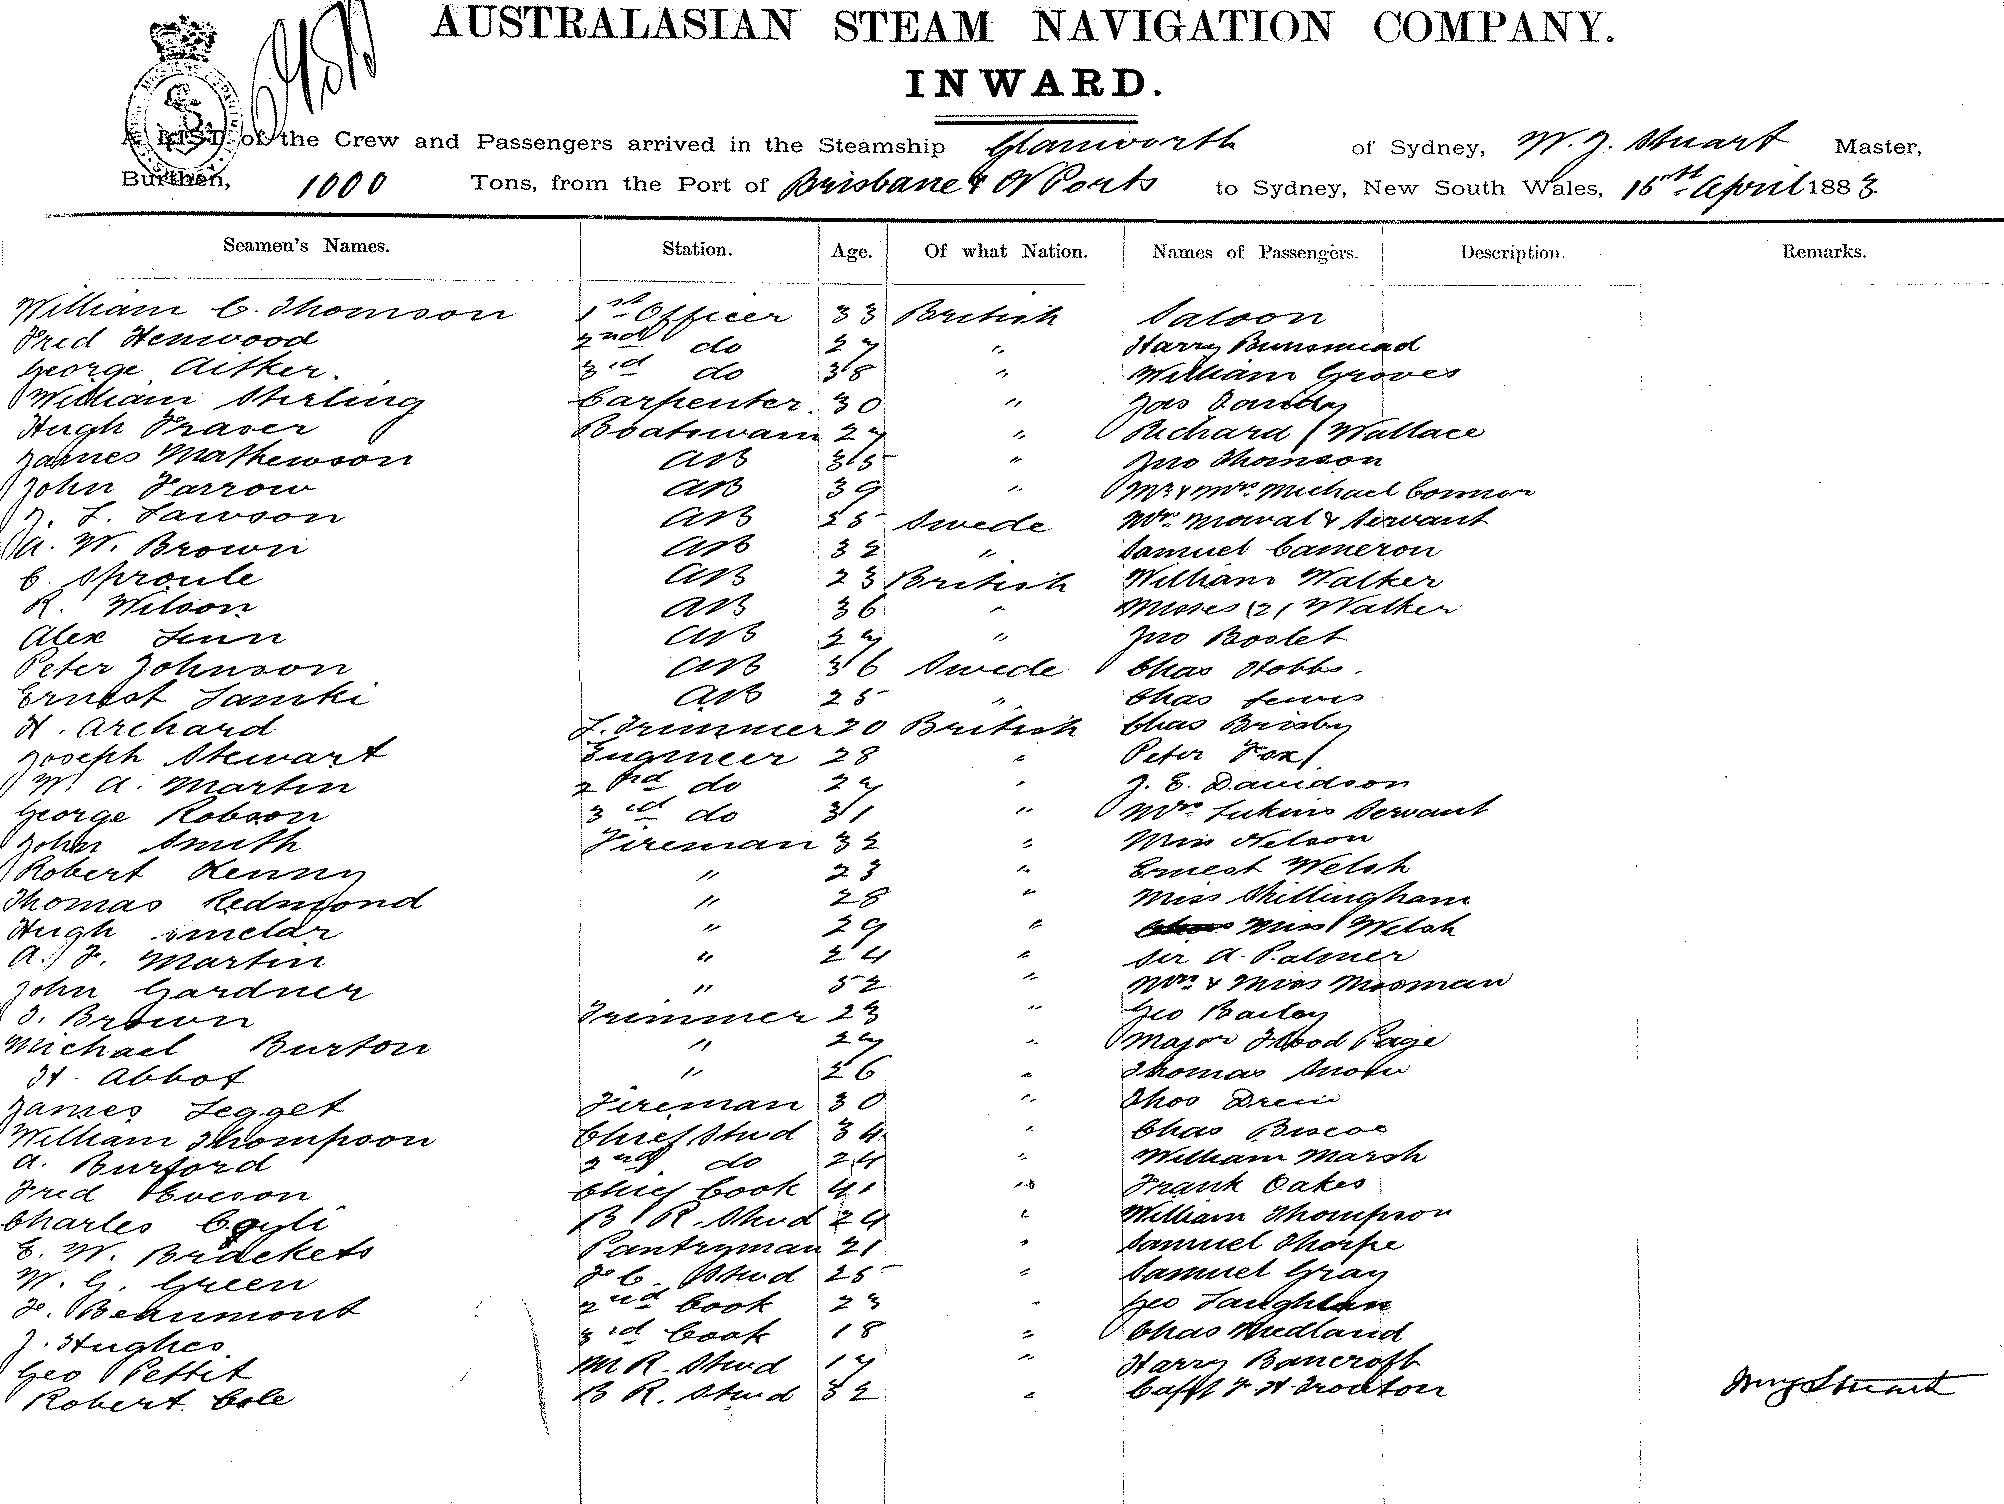 AUSTRALASIAN STEAM NAVIGATION COMPANY.
INWARD.
A LIST of the Crew and Passengers arrived in the Steamship Glanworth of Sydney, W. J. Stuart Master,
Burthen, 1000 Tons, from the Port of Brisbane & N Ports to Sydney, New South Wales, 15th April 1883
Seamen's Names. Station. Age. Of what Nation. Names of Passengers. Description. Remarks.
William C. Thomson 1st Officer 33 British Saloon
Fred Henwood 2nd do 27 " Harry Bunsmead
George Aitker. 3rd do 38 " William Groves
William Stirling Carpenter. 30 " Jas
Hugh Fraser Boatswain 27 " Richard Wallace
James Mathewson AB 35 " Jno Thomson
John Farrow AB 39 " Mr & Mrs Michael Connor
J. L. Lawson AB 25 Swede Mrs Moval & Servant
A. W. Brown AB 32 " Samuel Cameron
C. Sproule AB 23 British William Walker
R. Wilson AB 36 " Misses (2) Walker
Alex Lunn AB 27 " Jno Bostet
Peter Johnson AB 36 Swede Chas Hobbs.
Ernest Lamki AB 25 " Chas Lewis
H. Archard L. Trimmer 20 British Chas Brisby
Joseph Stewart Engineer 28 " Peter Fox
W. A. Martin 2nd do 27 " J. E. Davidson
George Robson 3rd do 31 " Mrs Lukins Servant
John Smith Fireman 32 " Miss Nelson
Robert Kenny " 23 " Ernest Welsh
Thomas Redmond " 28 " Miss Skillingham
Hugh Sinclar " 29 " Miss Welsh
A. F. Martin " 24 " Sir A. Palmer
John Gardner " 52 " Mrs & Miss Mosman
T. Brown Trimmer 23 " Geo Bailey
Michael Burton " 27 " Major Flood Page
H. Abbot " 26 " Thomas Snow
James Legget Fireman 30 " Thos Drew
William Thompson Chief Stwd 34 " Chas Biscoe
A. Burford 2nd do 24 " William Marsh
Fred Eveson Chief Cook 41 " Frank Oakes
Charles B R. Stwd 24 " William Thompson
E. W. Brackets Pantryman 21 " Samuel Thorpe
W. G. Green F C. Stwd 25 " Samuel Gray
F. Beaumont 2nd Cook 23 " Geo Laughlan
J. Hughes. 3rd Cook 18 " Chas Medland
Geo Pettit M R. Stwd 17 " Harry Bancroft
Robert Cole B R. Stwd 32 " Capt F. H. Trouton Wm J Stuart